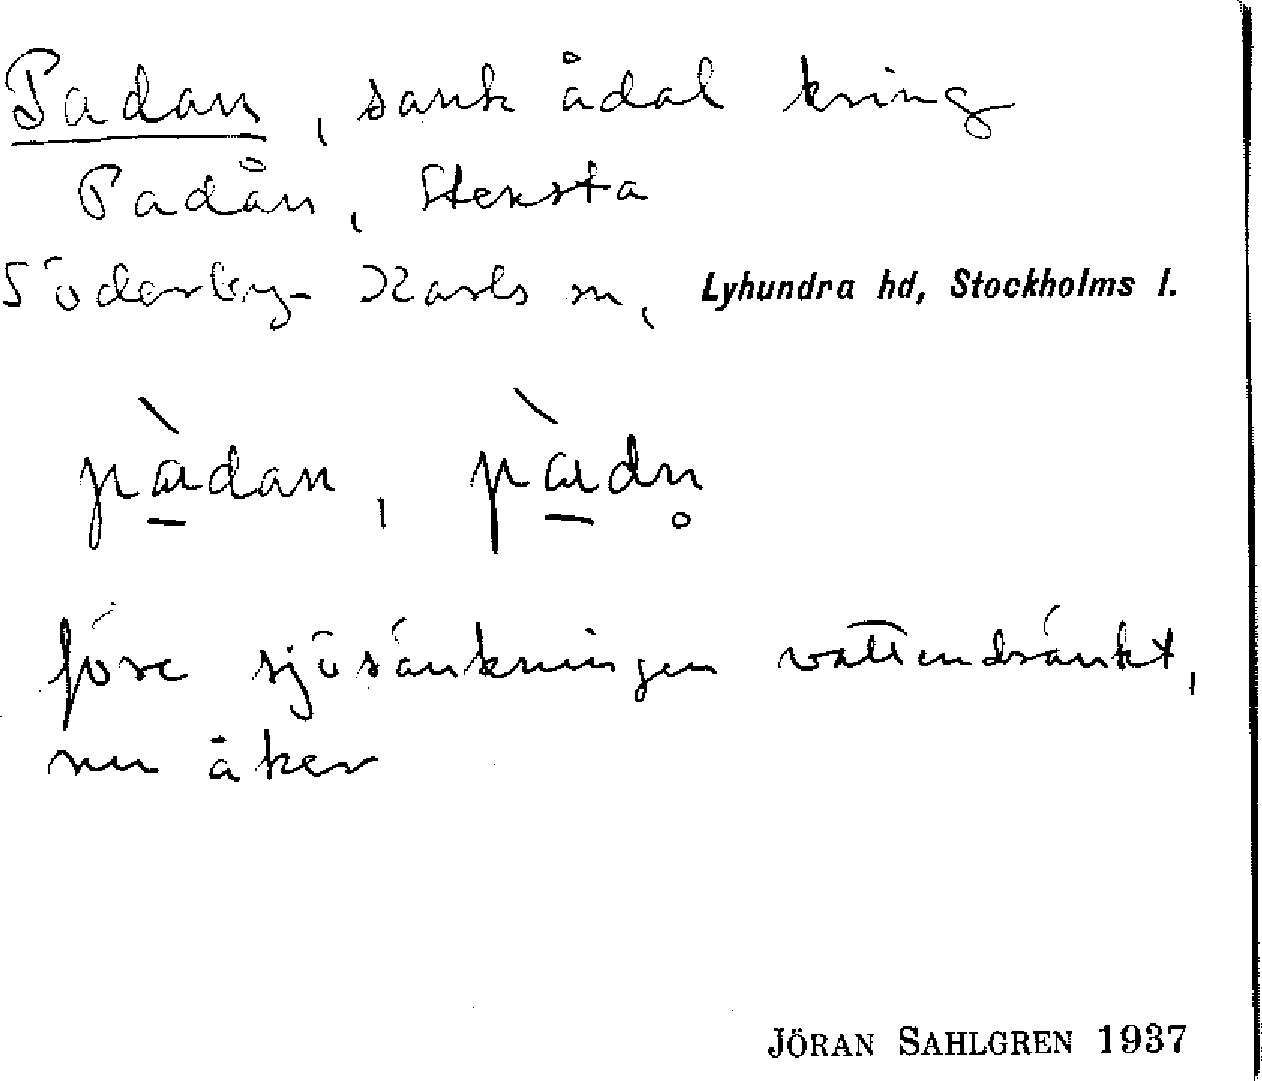 Padan, sank ådal kring
Padån, Steksta
Söderby-Karls sn, Lyhundra hd, Stockholms l.
pàdan, pàdn̥
före sjösänkningen vattendränkt,
nu åker
JÖRAN SAHLGREN 1937